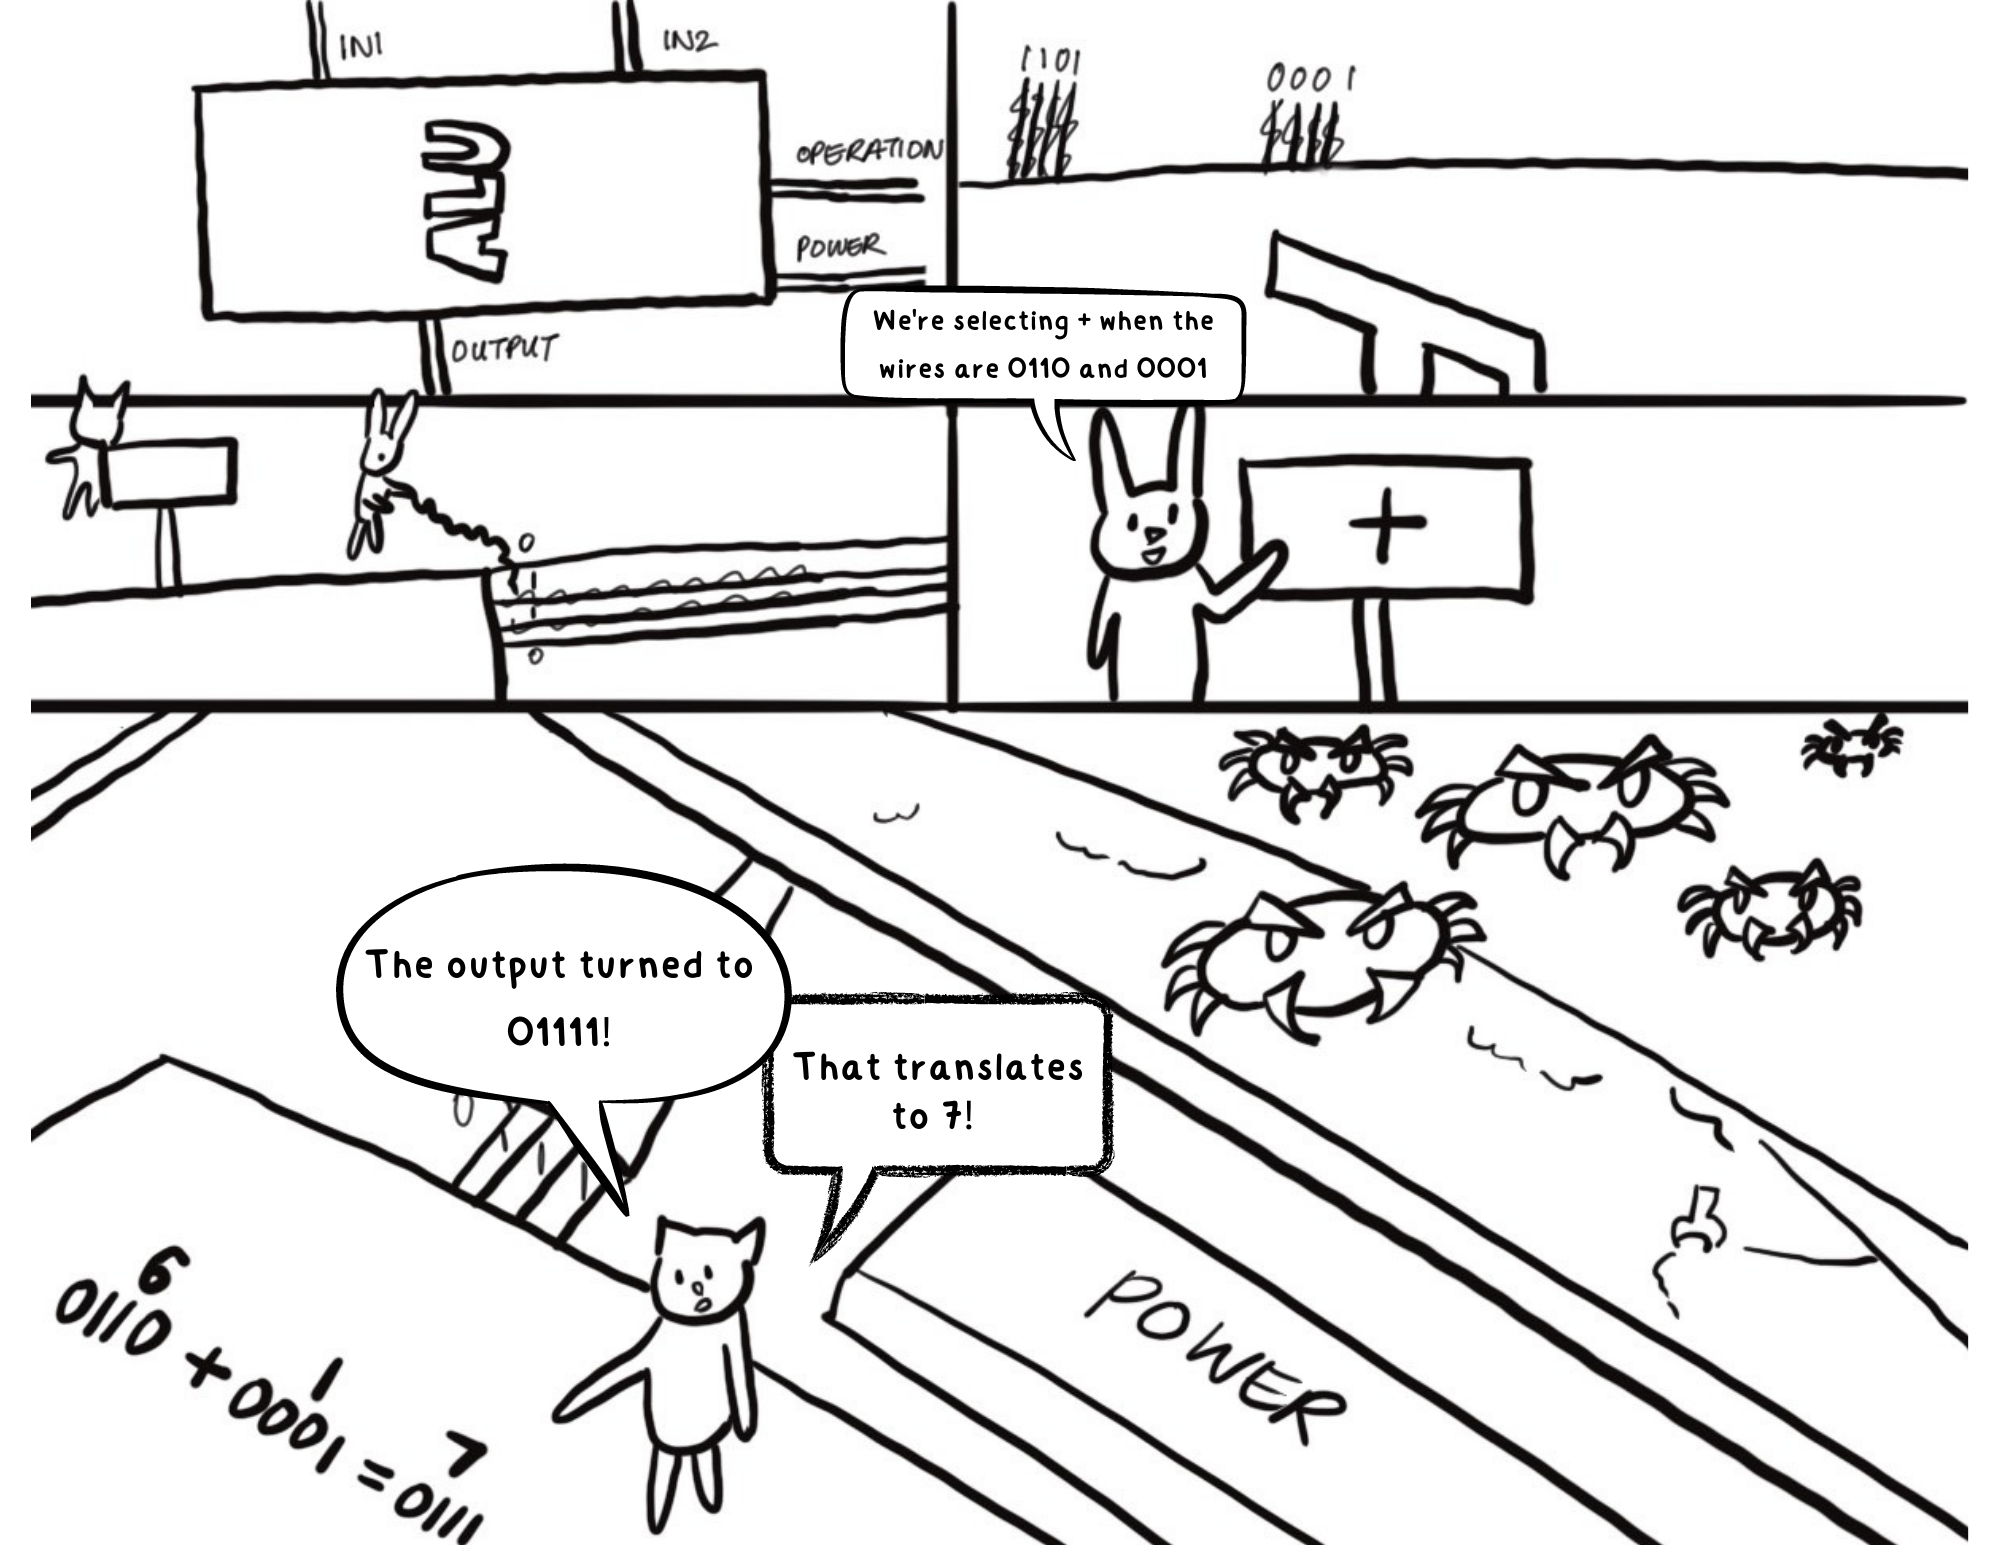 IN1
IN2
ALU
OPERATION
POWER
OUTPUT
1101
0001
We're selecting + when the
wires are 0110 and 0001
0
1
1
0
+
The output turned to
01111!
That translates
to 7!
0
1
1
1
POWER
6
1
7
0110 + 0001 = 0111